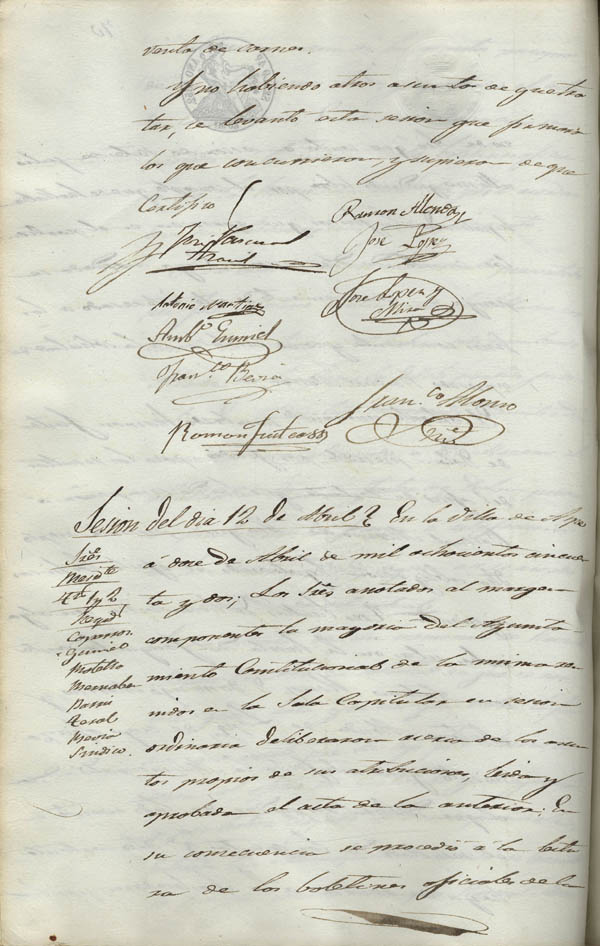 venta de carnes.
Y no habiendo otros asuntos de que tra
tar, se levanto esta sesion que firman
los que concurrieron, y supieron de que
Certifico
Ramon
Jose Lopez
Antonio Martinez
Jose Lopez y
Mira
Amb.º Gumiel
Fran.co
Juan
Ramon
Sesion del dia 12 de Abril En la Villa de Aspe
á doce de Abril de mil ochocientos cincuen
ta y dos; Los Sres anotados al margen
componentes la mayoria del Ayunta
miento Constitucional de la misma reu
nidos en la Sala Capitular en sesion
ordinaria deliberaron acerca de los asun
tos propios de sus atribuciones, leida y
aprobada el acta de la anterior; En
su consecuencia se procedió á la lectu
ra de los boletines oficiales de la
Sres
Presid.te
1º y 2º
Regid.s
Gumiel
Botella
Bernabeu
Sindico